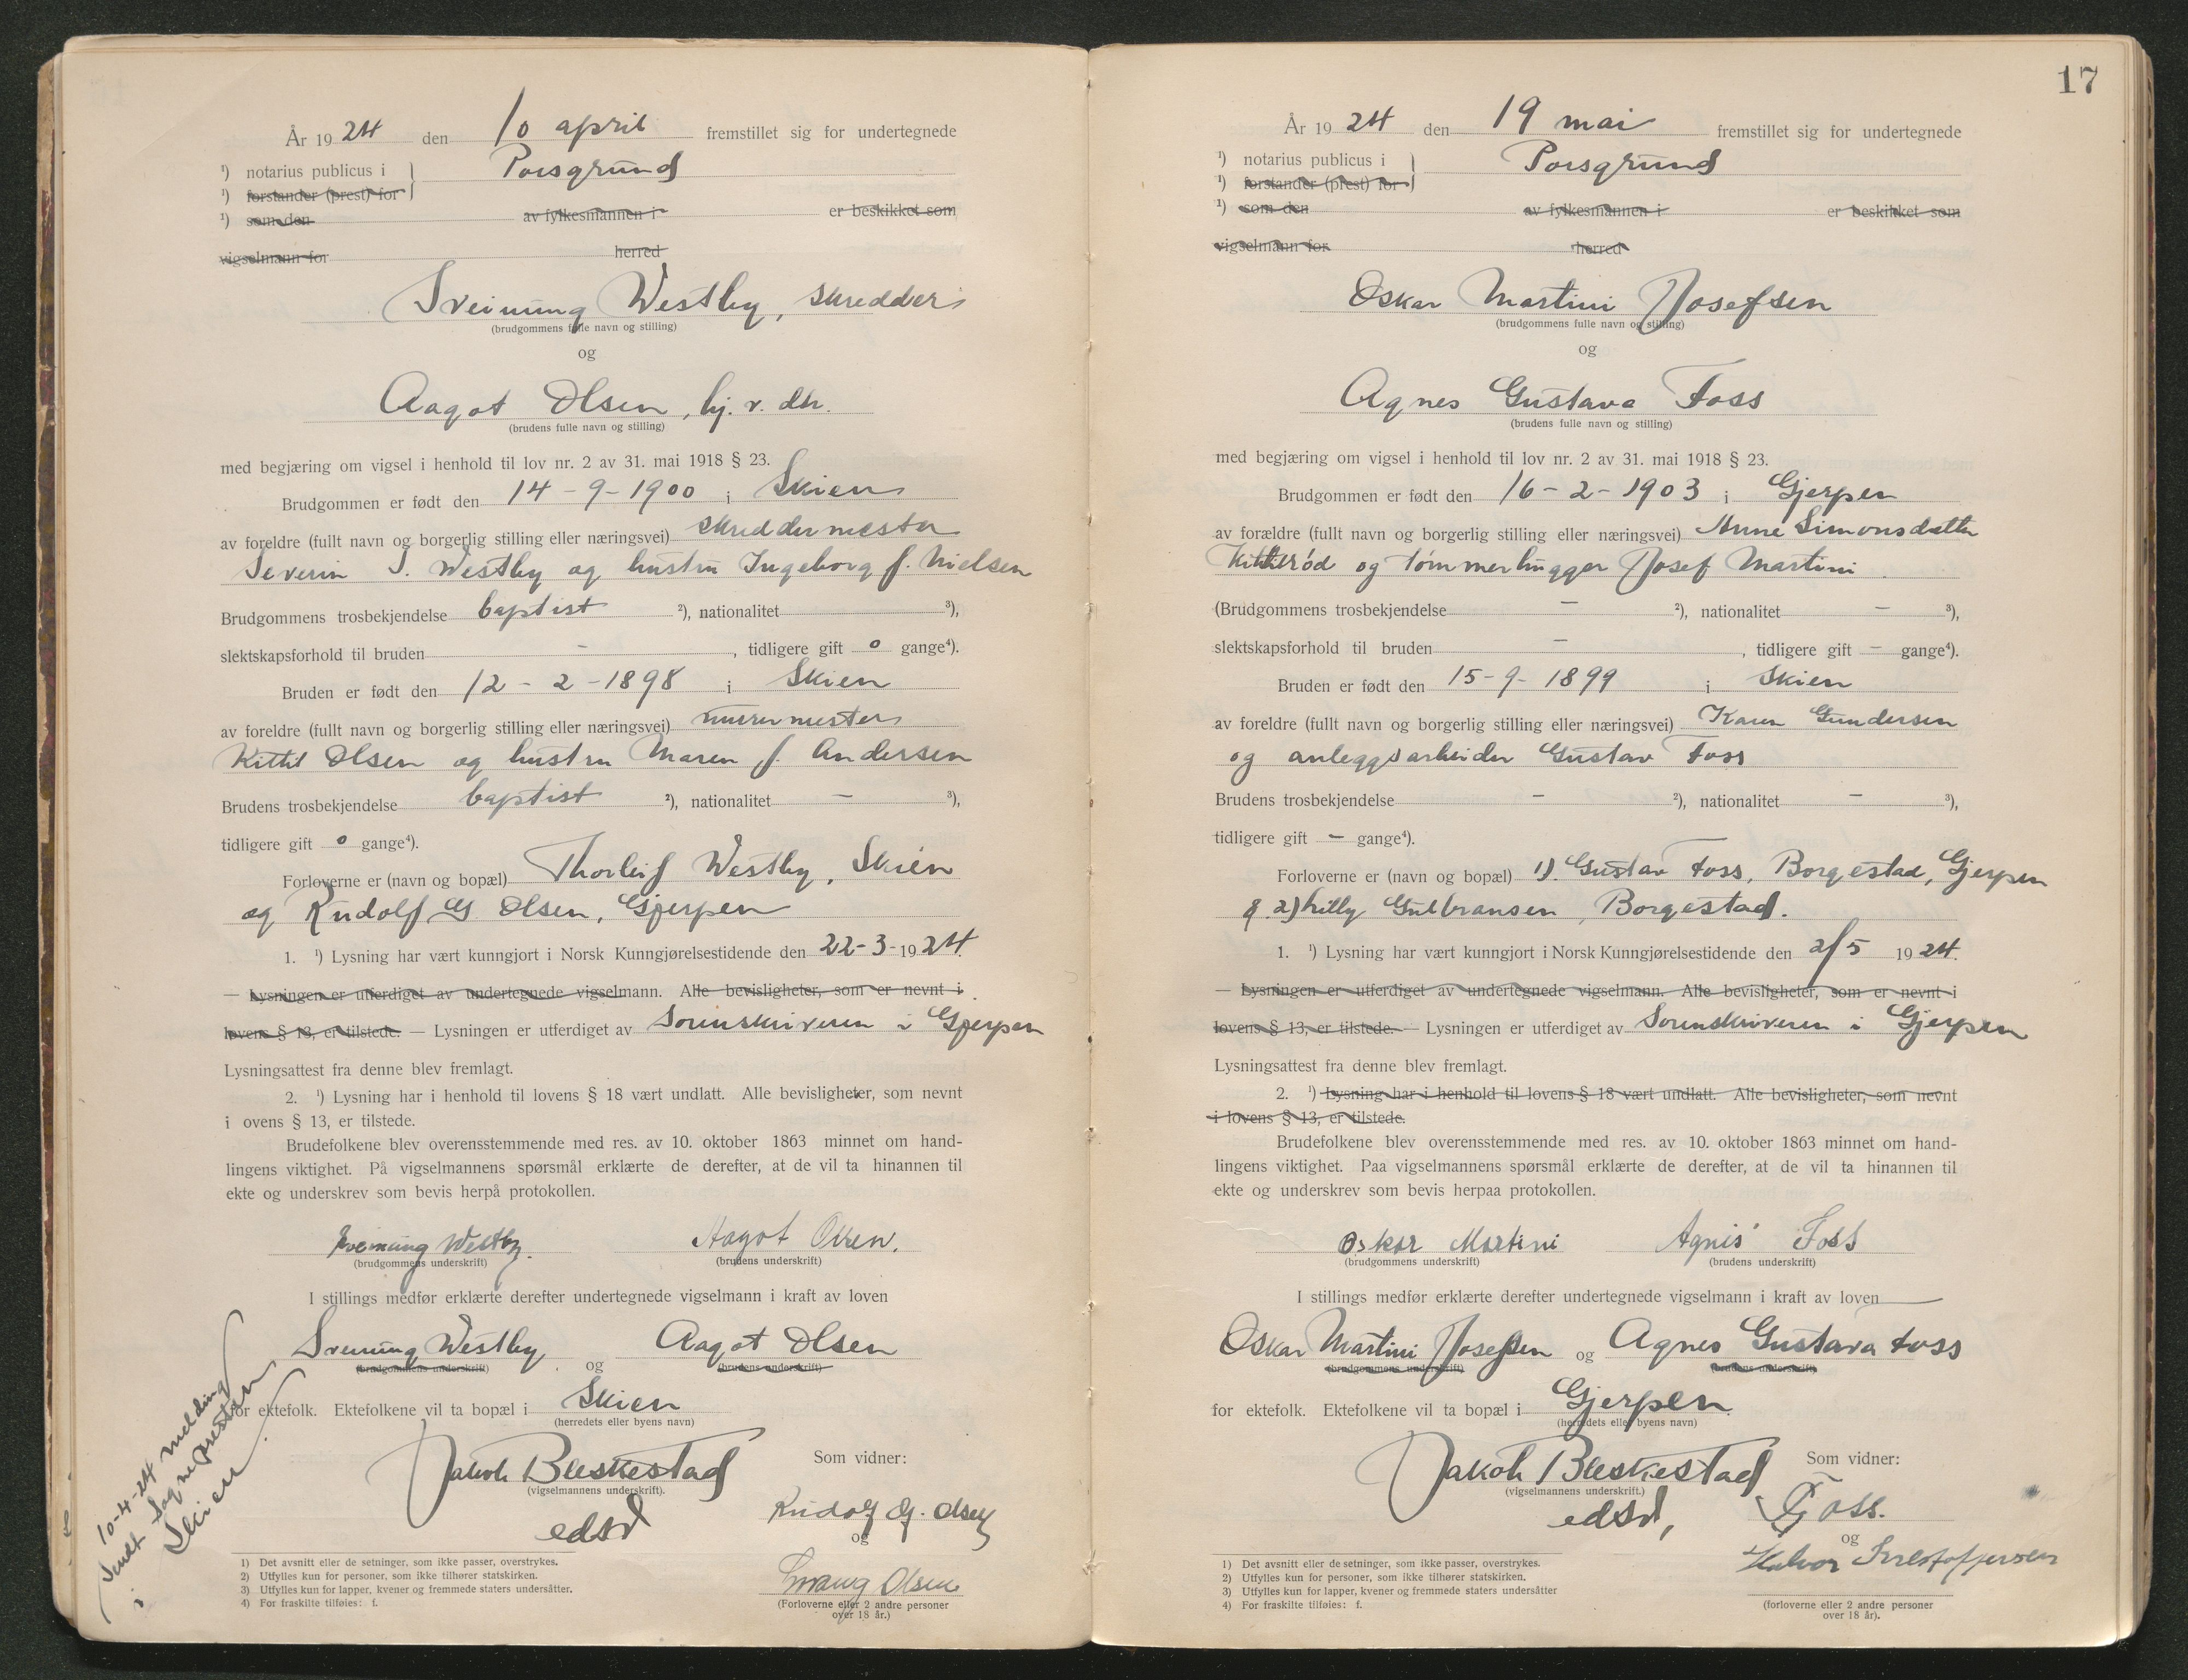 År 19 24 den 10 april fremstillet sig for undertegnede
1) notarius publicus i } Porsgrund
1) forstander (prest) for
1) som den av fylkesmannen i er beskikket som
vigselmann for herred
Sveinung Westby, skredder
(brudgommens fulle navn og stilling)
og
Aagot Olsen, hj. v. dtr.
(brudens fulle navn og stilling)
med begjæring om vigsel i henhold til lov nr. 2 av 31. mai 1918 § 23.
Brudgommen er født den 14-9-1900 i Skien
av foreldre (fullt navn og borgerlig stilling eller næringsvei) skreddermester
Severin S. Westby og hustru Ingeborg f. Nielsen
Brudgommens trosbekjendelse baptist 2), nationalitet 3),
slektskapsforhold til bruden - , tidligere gift 0 gange4).
Bruden er født den 12-2-1898 i Skien
av foreldre (fullt navn og borgerlig stilling eller næringsvei) murermester
Kittil Olsen og hustru Maren f. Andersen
Brudens trosbekjendelse baptist 2), nationalitet - 3),
tidligere gift 0 gange4).
Forloverne er (navn og bopæl) Thorleif Westby, Skien
og Rudolf G Olsen, Gjerpen
1. 1) Lysning har vært kunngjort i Norsk Kunngjørelsestidende den 22-3-1924.
— Lysningen er utferdiget av undertegnede vigselmann. Alle bevisligheter, som er nevnt i
lovens § 13, er tilstede. — Lysningen er utferdiget av Sorenskriveren i Gjerpen
Lysningsattest fra denne blev fremlagt.
2. 1) Lysning har i henhold til lovens § 18 vært undlatt. Alle bevisligheter, som nevnt
i ovens § 13, er tilstede.
Brudefolkene blev overensstemmende med res. av 10. oktober 1863 minnet om hand-
lingens viktighet. På vigselmannens spørsmål erklærte de derefter, at de vil ta hinannen til
ekte og underskrev som bevis herpå protokollen.
Sveinung Westby. Aagot Olsen.
(brudgommens underskrift) (brudens underskrift)
I stillings medfør erklærte derefter undertegnede vigselmann i kraft av loven
Sveinung Westby og Aagot Olsen
(brudgommens underskrift) (brudens underskrift)
for ektefolk. Ektefolkene vil ta bopæl i Skien
(herredets eller byens navn)
Jakob Bleskestad Som vidner:
(vigselmannens underskrift).
edsv Rudolf G. Olsen
og
Olsen
(Forloverne eller 2 andre personer
over 18 år.)
1) Det avsnitt eller de setninger, som ikke passer, overstrykes.
2) Utfylles kun for personer, som ikke tilhører statskirken.
3) Utfylles kun for lapper, kvener og fremmede staters undersåtter.
4) For fraskilte tilføies: f.
10-4-24 melding
sendt Sognepresten
i Skien
17
År 19 24 den 19 mai fremstillet sig for undertegnede
1) notarius publicus i } Porsgrund
1) forstander (prest) for
1) som den av fylkesmannen i er beskikket som
vigselmann for herred
Oskar Martini Josefsen
(brudgommens fulle navn og stilling)
og
Agnes Gustava Foss
(brudens fulle navn og stilling)
med begjæring om vigsel i henhold til lov nr. 2 av 31. mai 1918 § 23.
Brudgommen er født den 16-2-1903 i Gjerpen
av forældre (fullt navn og borgerlig stilling eller næringsvei) Anne Simonsdatter
Kittilrød og tømmerhugger Josef Martini
(Brudgommens trosbekjendelse - 2), nationalitet - 3),
slektskapsforhold til bruden - , tidligere gift - gange4).
Bruden er født den 15-9-1899 i Skien
av foreldre (fullt navn og borgerlig stilling eller næringsvei) Karen Gundersen
og anleggsarbeider Gustav Foss
Brudens trosbekjendelse - 2), nationalitet - 3),
tidligere gift - gange4).
Forloverne er (navn og bopæl) 1). Gustav Foss, Borgestad, Gjerpen
& 2) Gulbransen, Borgestad.
1. 1) Lysning har vært kunngjort i Norsk Kunngjørelsestidende den 2/5 1924.
— Lysningen er utferdiget av undertegnede vigselmann. Alle bevisligheter, som er nevnt i
lovens § 13, er tilstede. — Lysningen er utferdiget av Sorenskriveren i Gjerpen
Lysningsattest fra denne blev fremlagt.
2. 1) Lysning har i henhold til lovens § 18 vært undlatt. Alle bevisligheter, som nevnt
i lovens § 13, er tilstede.
Brudefolkene blev overensstemmende med res. av 10. oktober 1863 minnet om hand-
lingens viktighet. Paa vigselmannens spørsmål erklærte de derefter, at de vil ta hinannen til
ekte og underskrev som bevis herpaa protokollen.
Oskar Martini Agnes Foss
(brudgommens underskrift) (brudens underskrift)
I stillings medfør erklærte derefter undertegnede vigselmann i kraft av loven
Oskar Martini Josefsen og Agnes Gustava Foss
(brudgommens underskrift) (brudens underskrift)
for ektefolk. Ektefolkene vil ta bopæl i Gjerpen
(herredets eller byens navn)
Jakob Bleskestad Som vidner:
(vigselmannens underskrift.)
edsv, G Foss.
og
Halvor Kristoffersen
(forloverne eller 2 andre personer
over 18 år).
1) Det avsnitt eller de setninger, som ikke passer, overstrykes.
2) Utfylles kun for personer, som ikke tilhører statskirken.
3) Utfylles kun for lapper, kvener og fremmede staters undersåtter
4) For fraskilte tilføies: f.